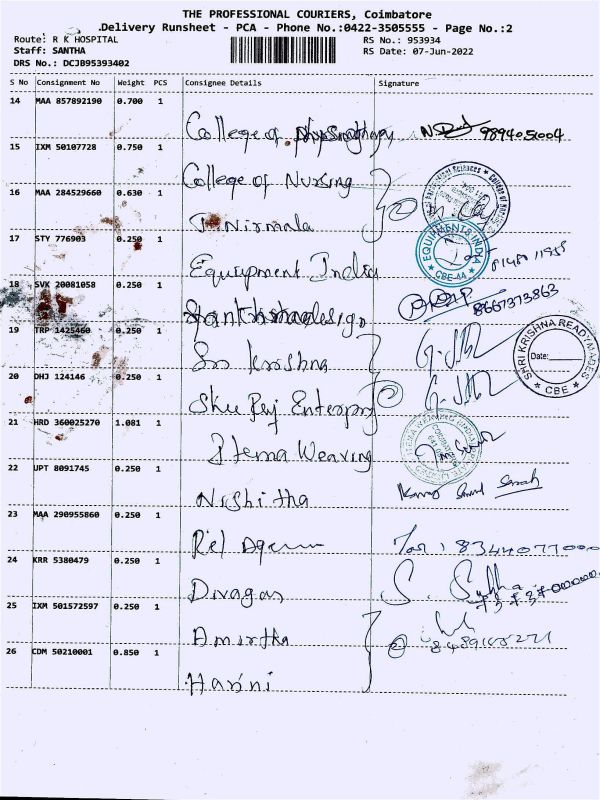 THE PROFESSIONAL COURIERS, Coimbatore
Delivery Runsheet - PCA - Phone No.:0422-3505555 - Page No.:2
Route: R K HOSPITAL RS No.: 953934
Staff: SANTHA RS Date: 07-Jun-2022
DRS No.: DCJB95393402
S No Consignment No Weight PCS Consignee Details Signature
14 MAA 857892190 0.700 1
College of 9894051004
15 IXM 50107728 0.750 1
College of Nursing
16 MAA 284529660 0.630 1
T. Nirmala
17 STY 776903 0.250 1
EQUIPMENTS INDIA
CBE-44
Equipment India
18 SVK 20081058 0.250 1
8667373863
19 TRP 1425460 0.250 1
SHRI KRISHNA READYMADES
Date:
CBE
Sri Krishna
20 DHJ 124146 0.250 1
Shree Enterpris
21 HRD 360025270 1.081 1
Stema Weaving
22 UPT 8091745 0.250 1
Nishitha
23 MAA 290955860 0.250 1
24 KRR 5380479 0.250 1
Divagar S.
25 IXM 501572597 0.250 1
Amirtha
26 CDM 50210001 0.850 1
Harini